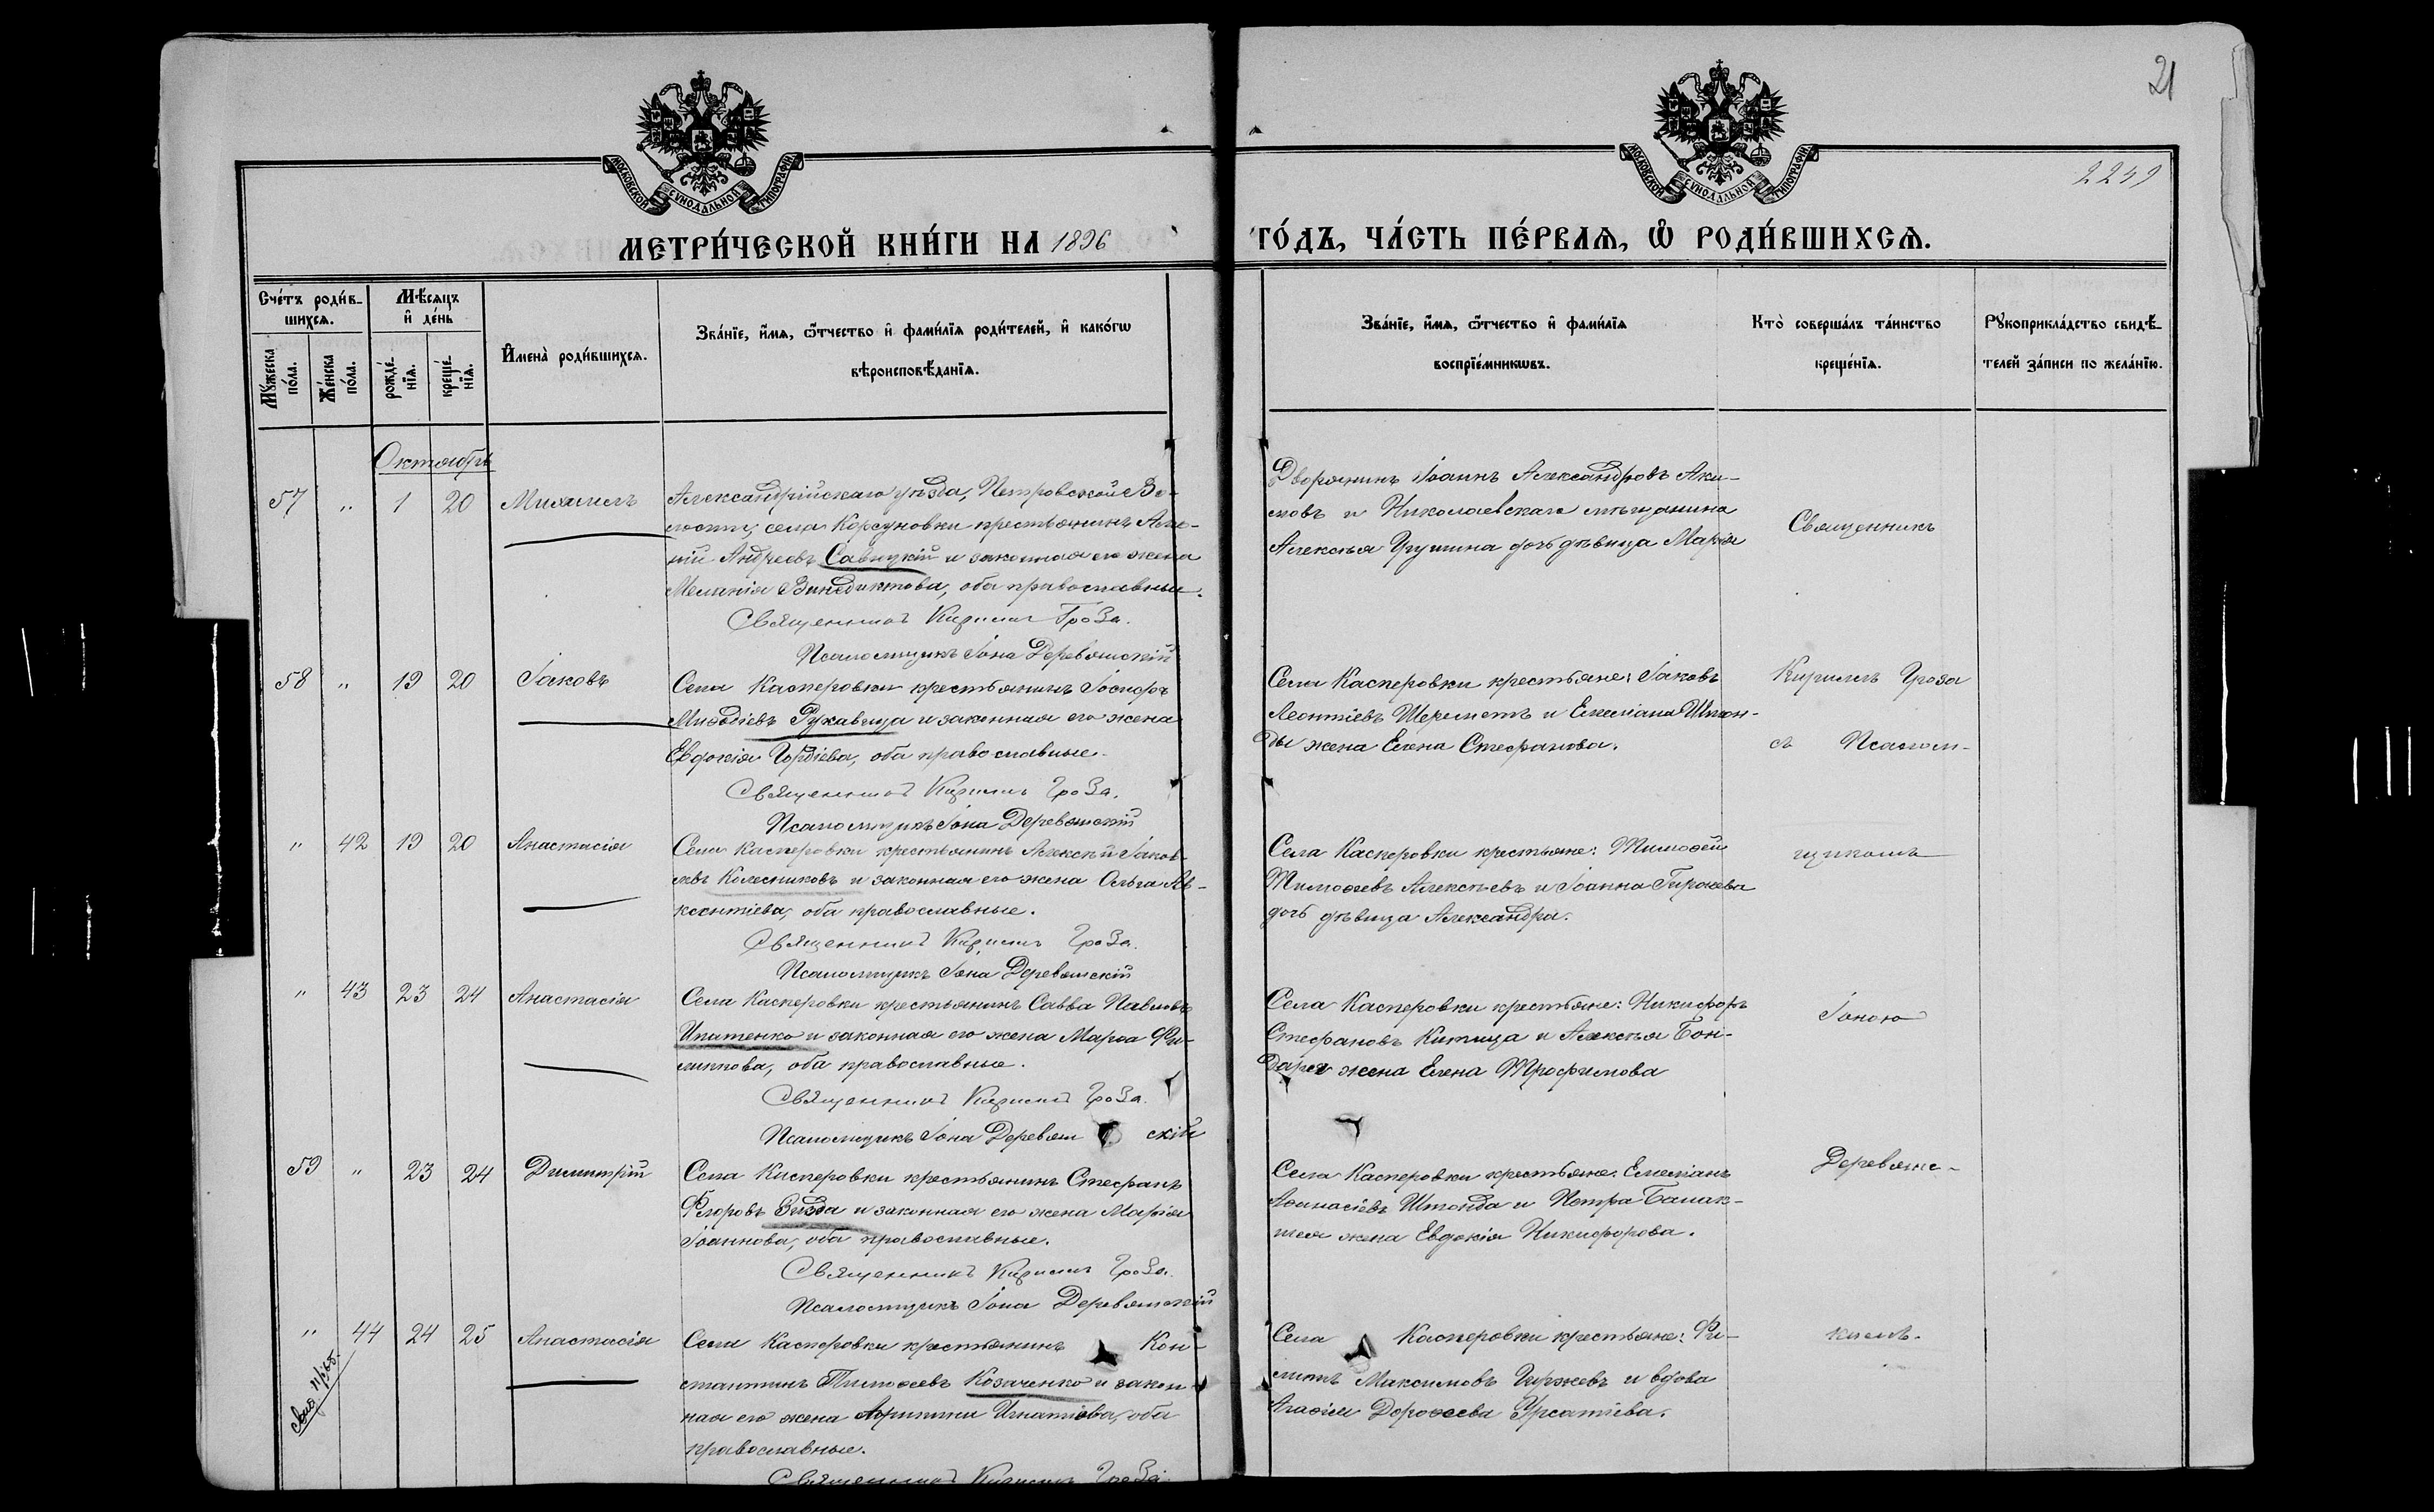 21
2249
МОСКОВСКОЙ СУНОДАЛЬНОЙ ТИПОГРАФІИ
МОСКОВСКОЙ СУНОДАЛЬНОЙ ТИПОГРАФІИ
МЕТРИ́ЧЕСКОЙ КНИ́ГИ НА 1896 ГО́ДЪ, ЧА́СТЬ ПЕ́РВАѦ, Ѽ РОДИ́ВШИХСѦ.
Сче́тъ роди́в-
шихсѧ.
Мꙋ́жеска по́ла.
Же́нска по́ла.
Мѣ́сѧцъ и҆ де́нь
рожде́-нїѧ.
креще́-нїѧ.
И҆мена̀ роди́вшихсѧ.
Зва́нїе, и҆́мѧ, ѻ҆́тчество и҆ фами́лїѧ роди́телей, и҆ како́гѡ
вѣроисповѣ́данїѧ.
Зва́нїе, и҆́мѧ, ѻ҆́тчество и҆ фами́лїѧ
воспрїе́мникѡвъ.
Кто̀ соверша́лъ та́инство
креще́нїѧ.
Рꙋкоприкла́дство свидѣ́-
телей за́писи по жела́нїю.
Октябрь
57 " 1 20 Михаилъ
Александрійскаго уѣзда, Петровской Во-
лости, села Корсуновки крестьянинъ
Андреевъ Савицкій и законная его жена
Меланія Винедиктова, оба православные.
Священникъ Кириллъ Гроза.
Псаломщикъ Іона Деревянскій
Дворянинъ Іоаннъ Александровъ Аки-
мовъ и Николаевскаго мѣщанина
Алексѣя дочь дѣвица Марія
Священникъ
58 " 19 20 Іаковъ
Села Касперовки крестьянинъ Іосифъ
Рукавица и законная его жена
Евдокія Гордіева, оба православные.
Священникъ Кириллъ Гроза.
Псаломщикъ Іона Деревянскій
Села Касперовки крестьяне: Іаковъ
Леонтіевъ Шереметъ и Емеліана Штон-
ды жена Елена Стефанова.
Кириллъ Гроза
съ Псалом-
" 42 19 20 Анастасія
Села Касперовки крестьянинъ Алексѣй Іаков-
левъ Колесниковъ и законная его жена Ольга Ав-
ксентіева, оба православные.
Священникъ Кириллъ Гроза.
Псаломщикъ Іона Деревянскій
Села Касперовки крестьяне: Тимоѳей
Тимоѳеевъ Алексѣевъ и Іоанна Гиржева
дочь дѣвица Александра.
щикомъ
" 43 23 24 Анастасія
Села Касперовки крестьянинъ Савва Павловъ
Ипатенко и законная его жена Марѳа Фи-
липпова, оба православные.
Священникъ Кириллъ Гроза.
Псаломщикъ Іона Деревян скій
Села Касперовки крестьяне: Никифоръ
Стефановъ Китица и Алексѣя Бон-
даря жена Елена Трофимова
Іоною
59 " 23 24 Димитрій
Села Касперовки крестьянинъ Стефанъ
Ѳедоровъ и законная его жена Марія
Іоаннова, оба православные.
Священникъ Кириллъ Гроза.
Псаломщикъ Іона Деревянскій
Села Касперовки крестьяне: Емеліанъ
Аѳанасіевъ Штонда и Петра
жена Евдокія Никифорова.
Деревянс-
" 44 24 25 Анастасія
Села Касперовки крестьянинъ Кон-
стантинъ Тимоѳеевъ Козаченко и закон-
ная его жена Агрипина Игнатіева, оба
православные.
Священникъ Кириллъ Гроза.
Села Касперовки крестьяне: Фи-
липпъ Максимовъ Гиржевъ и вдова
Агаѳія Дороѳеева
кимъ.